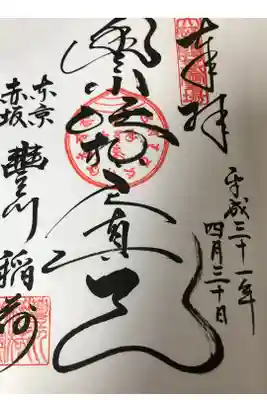 奉拝
平成三十一年
四月三十日
豊川吒枳真天
東京
赤坂
豊川稲荷